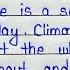 e is a s
lay. Clima
t the w
out and